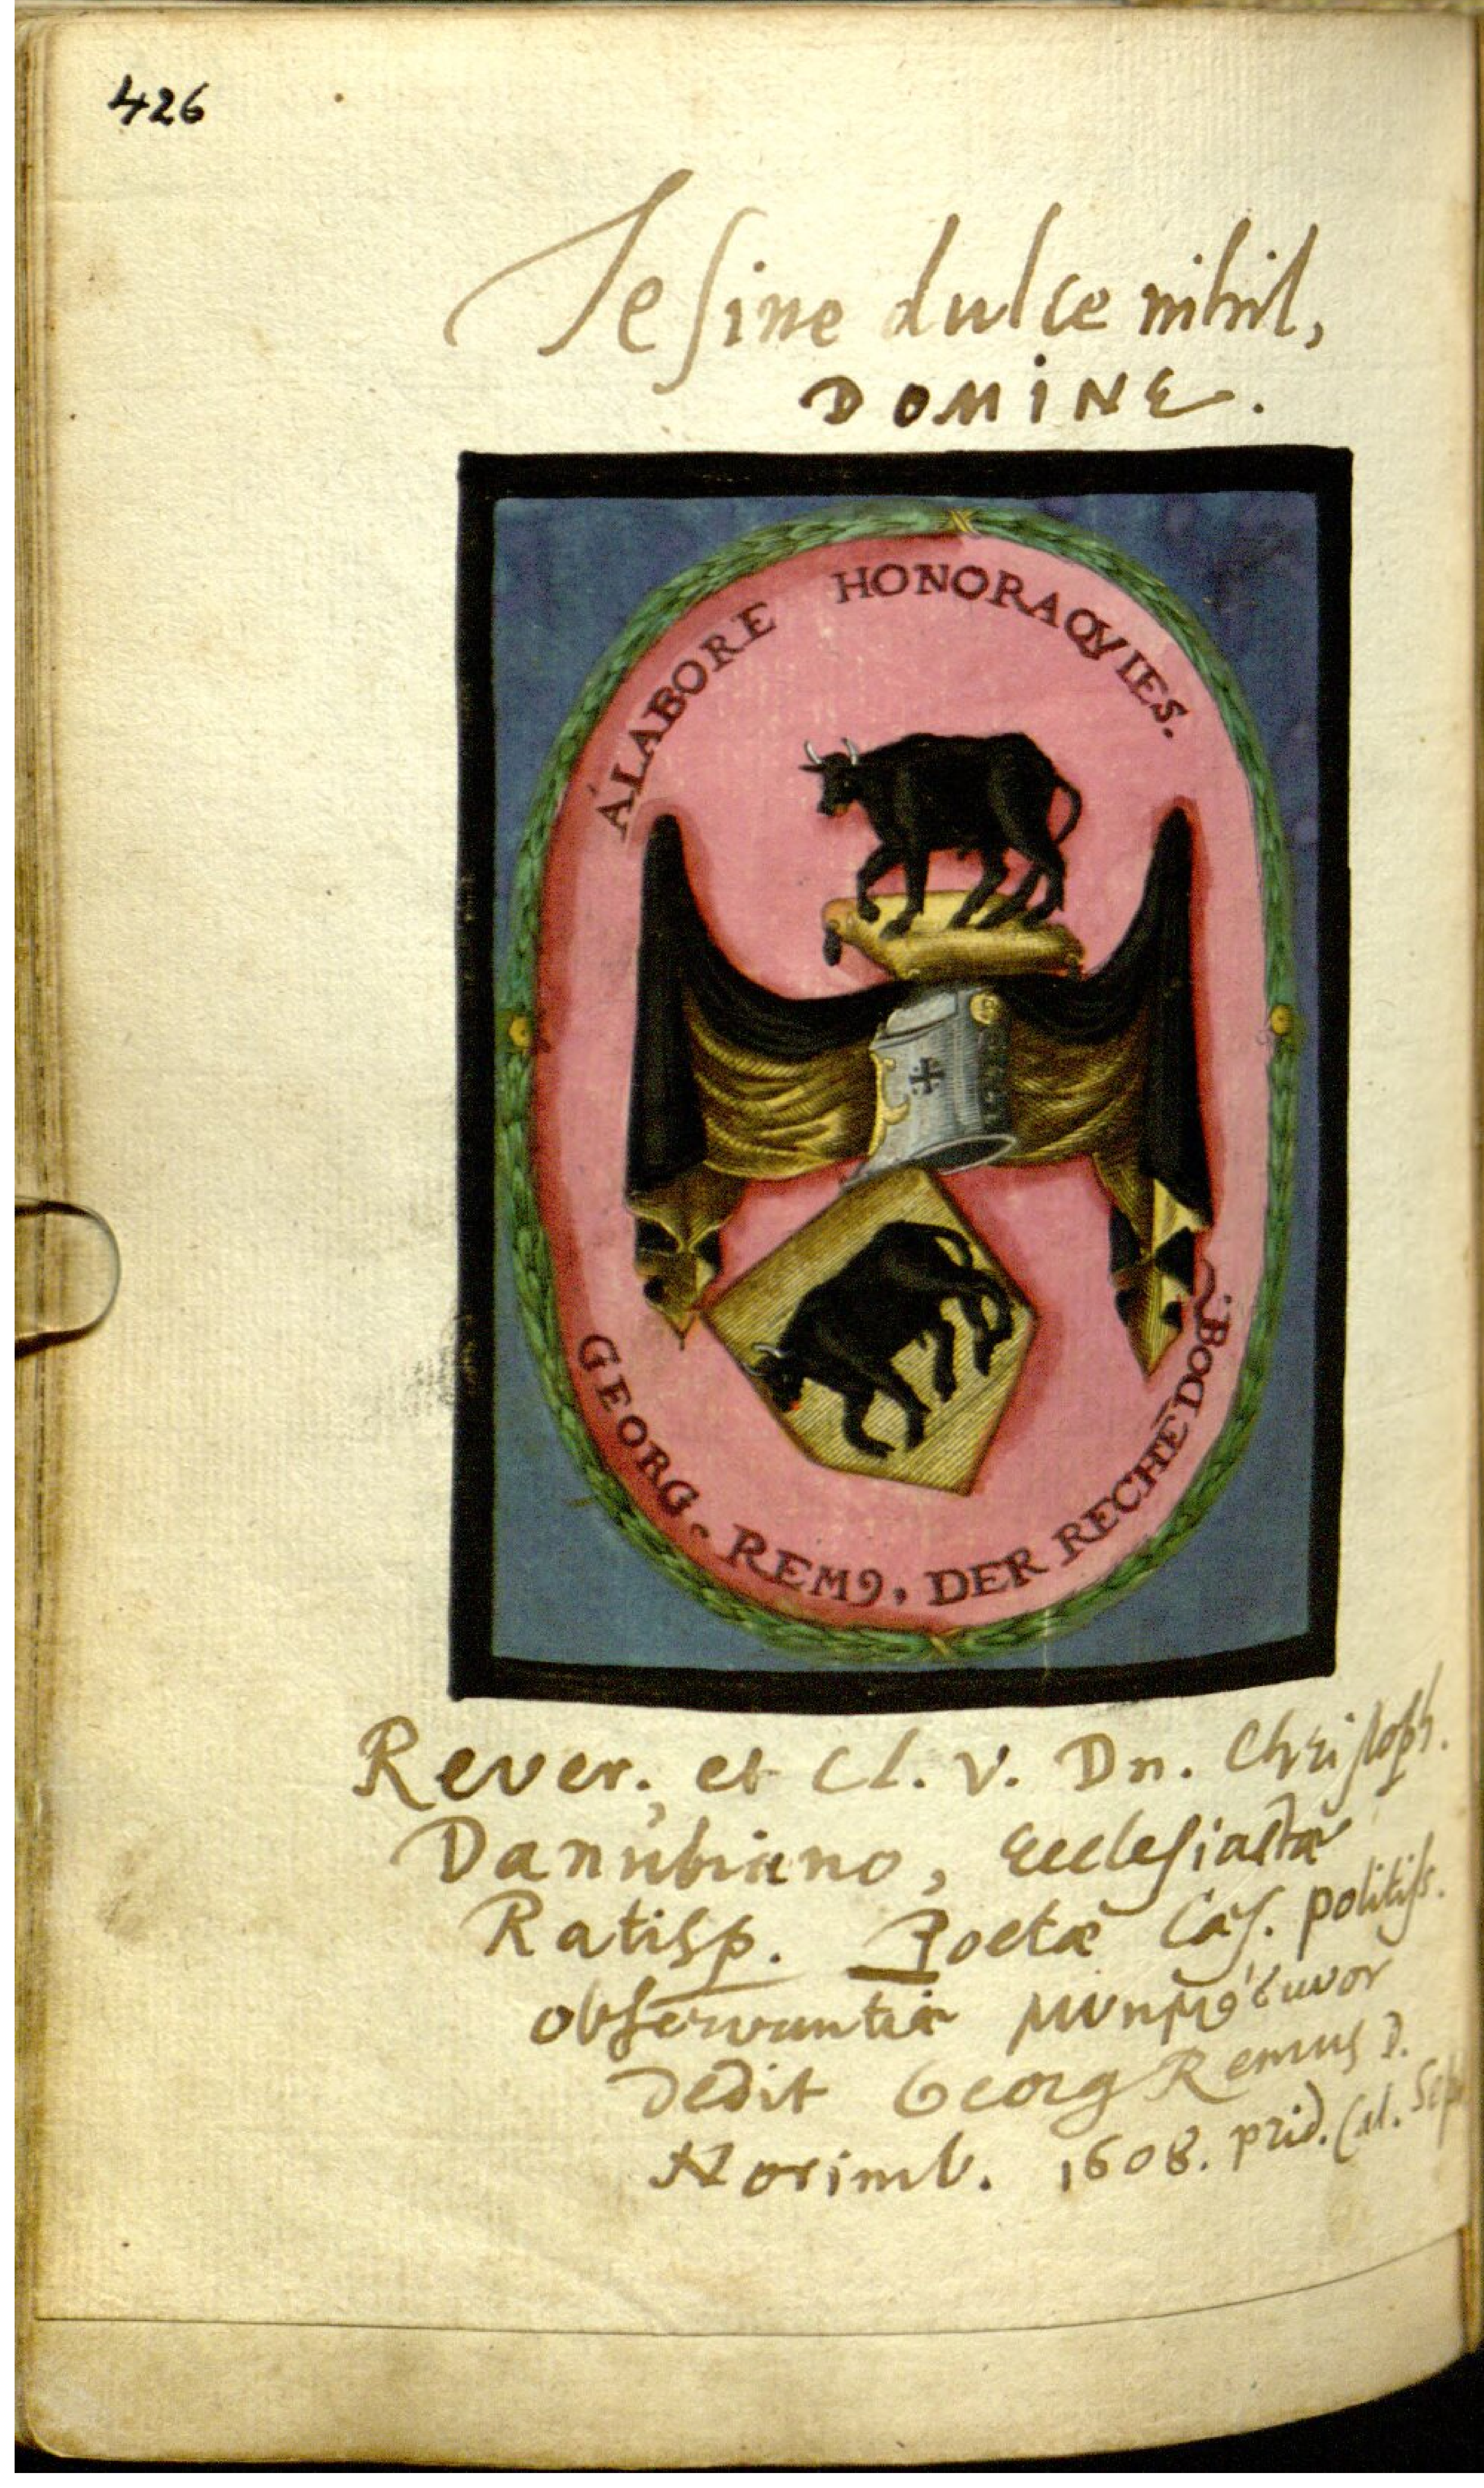 426
Te sine dulce nihil,
DOMINE.
A LABORE HONORA QVIES.
GEORG. REM9, DER RECHĒ DOR.
Rever. et Cl. V. Dn. Christoph.
Danubiano, Ecclesiastæ
Ratisp. Poetæ Cæs. politiss.
observantiæ μνημόσυνον
dedit Georg Remus D.
Norimb. 1608. prid. Cal. Sept